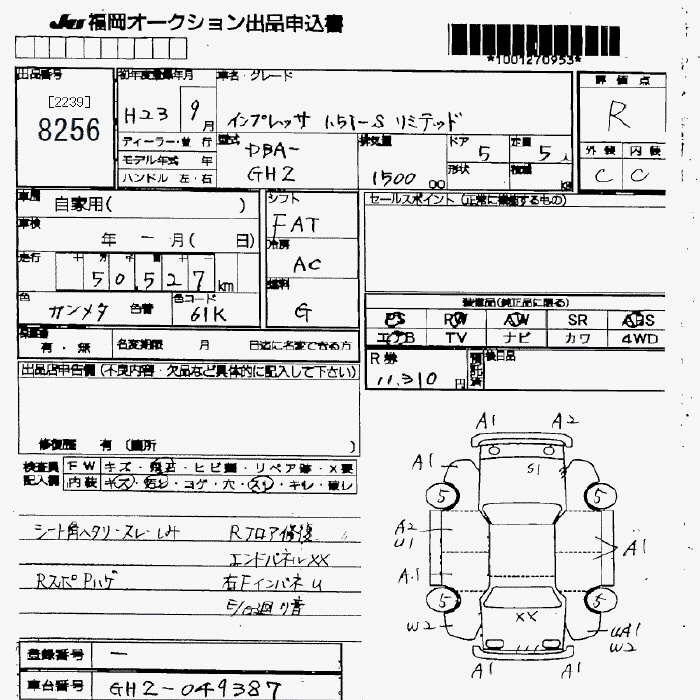 JU 福岡オークション出品申込書
*1001270953*
出品番号
[2239]
8256
初年度登録年月
H23 9月
車名・グレード
インプレッサ 1.5i-S リミテッド
評価点
R
外装 内装
C C
ディーラー・並行
モデル年式 年
ハンドル 左・右
型式
DBA-
GH2
排気量
1500
ドア
5
形状
定員
5人
積載
kg
車歴
自家用( )
車検
年 - 月( 日)
走行
50,527km
色
ガンメタ
色替
色コード
61K
シフト
FAT
冷房
AC
燃料
G
セールスポイント (正常に機能するもの)
装備品(純正品に限る)
PS PW AW SR ABS
エアB TV ナビ カワ 4WD
保証書
有・無
名変期限 月 日迄に名変できる方
R券
11,310円
預託済
後日品
出品店申告欄 (不良内容・欠品など具体的に記入して下さい)
修復歴 有 (箇所 )
検査員記入欄
FW キズ・飛石・ヒビ割・リペア跡・X要
内装 キズ・汚レ・コゲ・穴・スレ・キレ・破レ
シート角ヘタリ・スレ・シミ
Rフロア修復
エンドパネルXX
RスポPハゲ
右FインパネU
A1 A2
A1 S1
5 5
A2
U1
A1
A1
5 5
W2 XX UA1
W2
A1 A1
登録番号 -
車台番号 GH2-049387